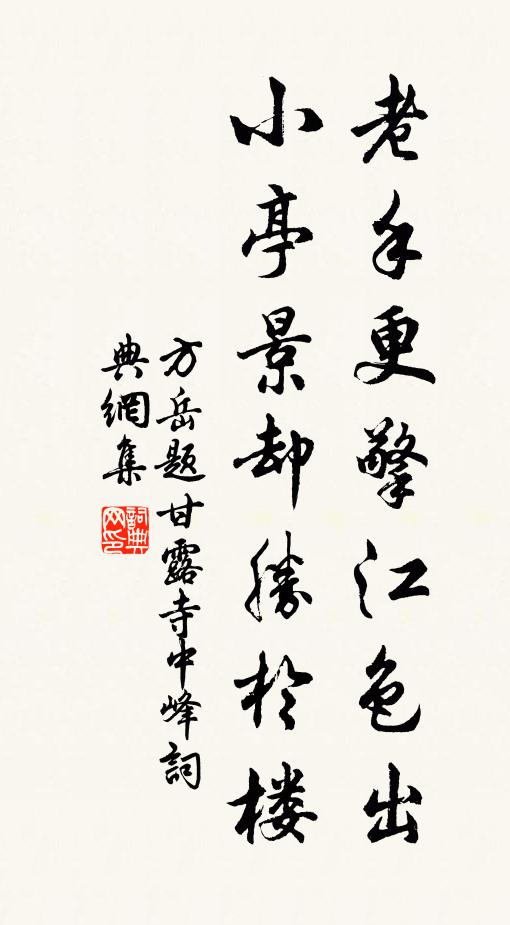 老手更擎江色出
小亭景却勝於楼
方岳題甘露寺中峰詞
典網集
詞典网印